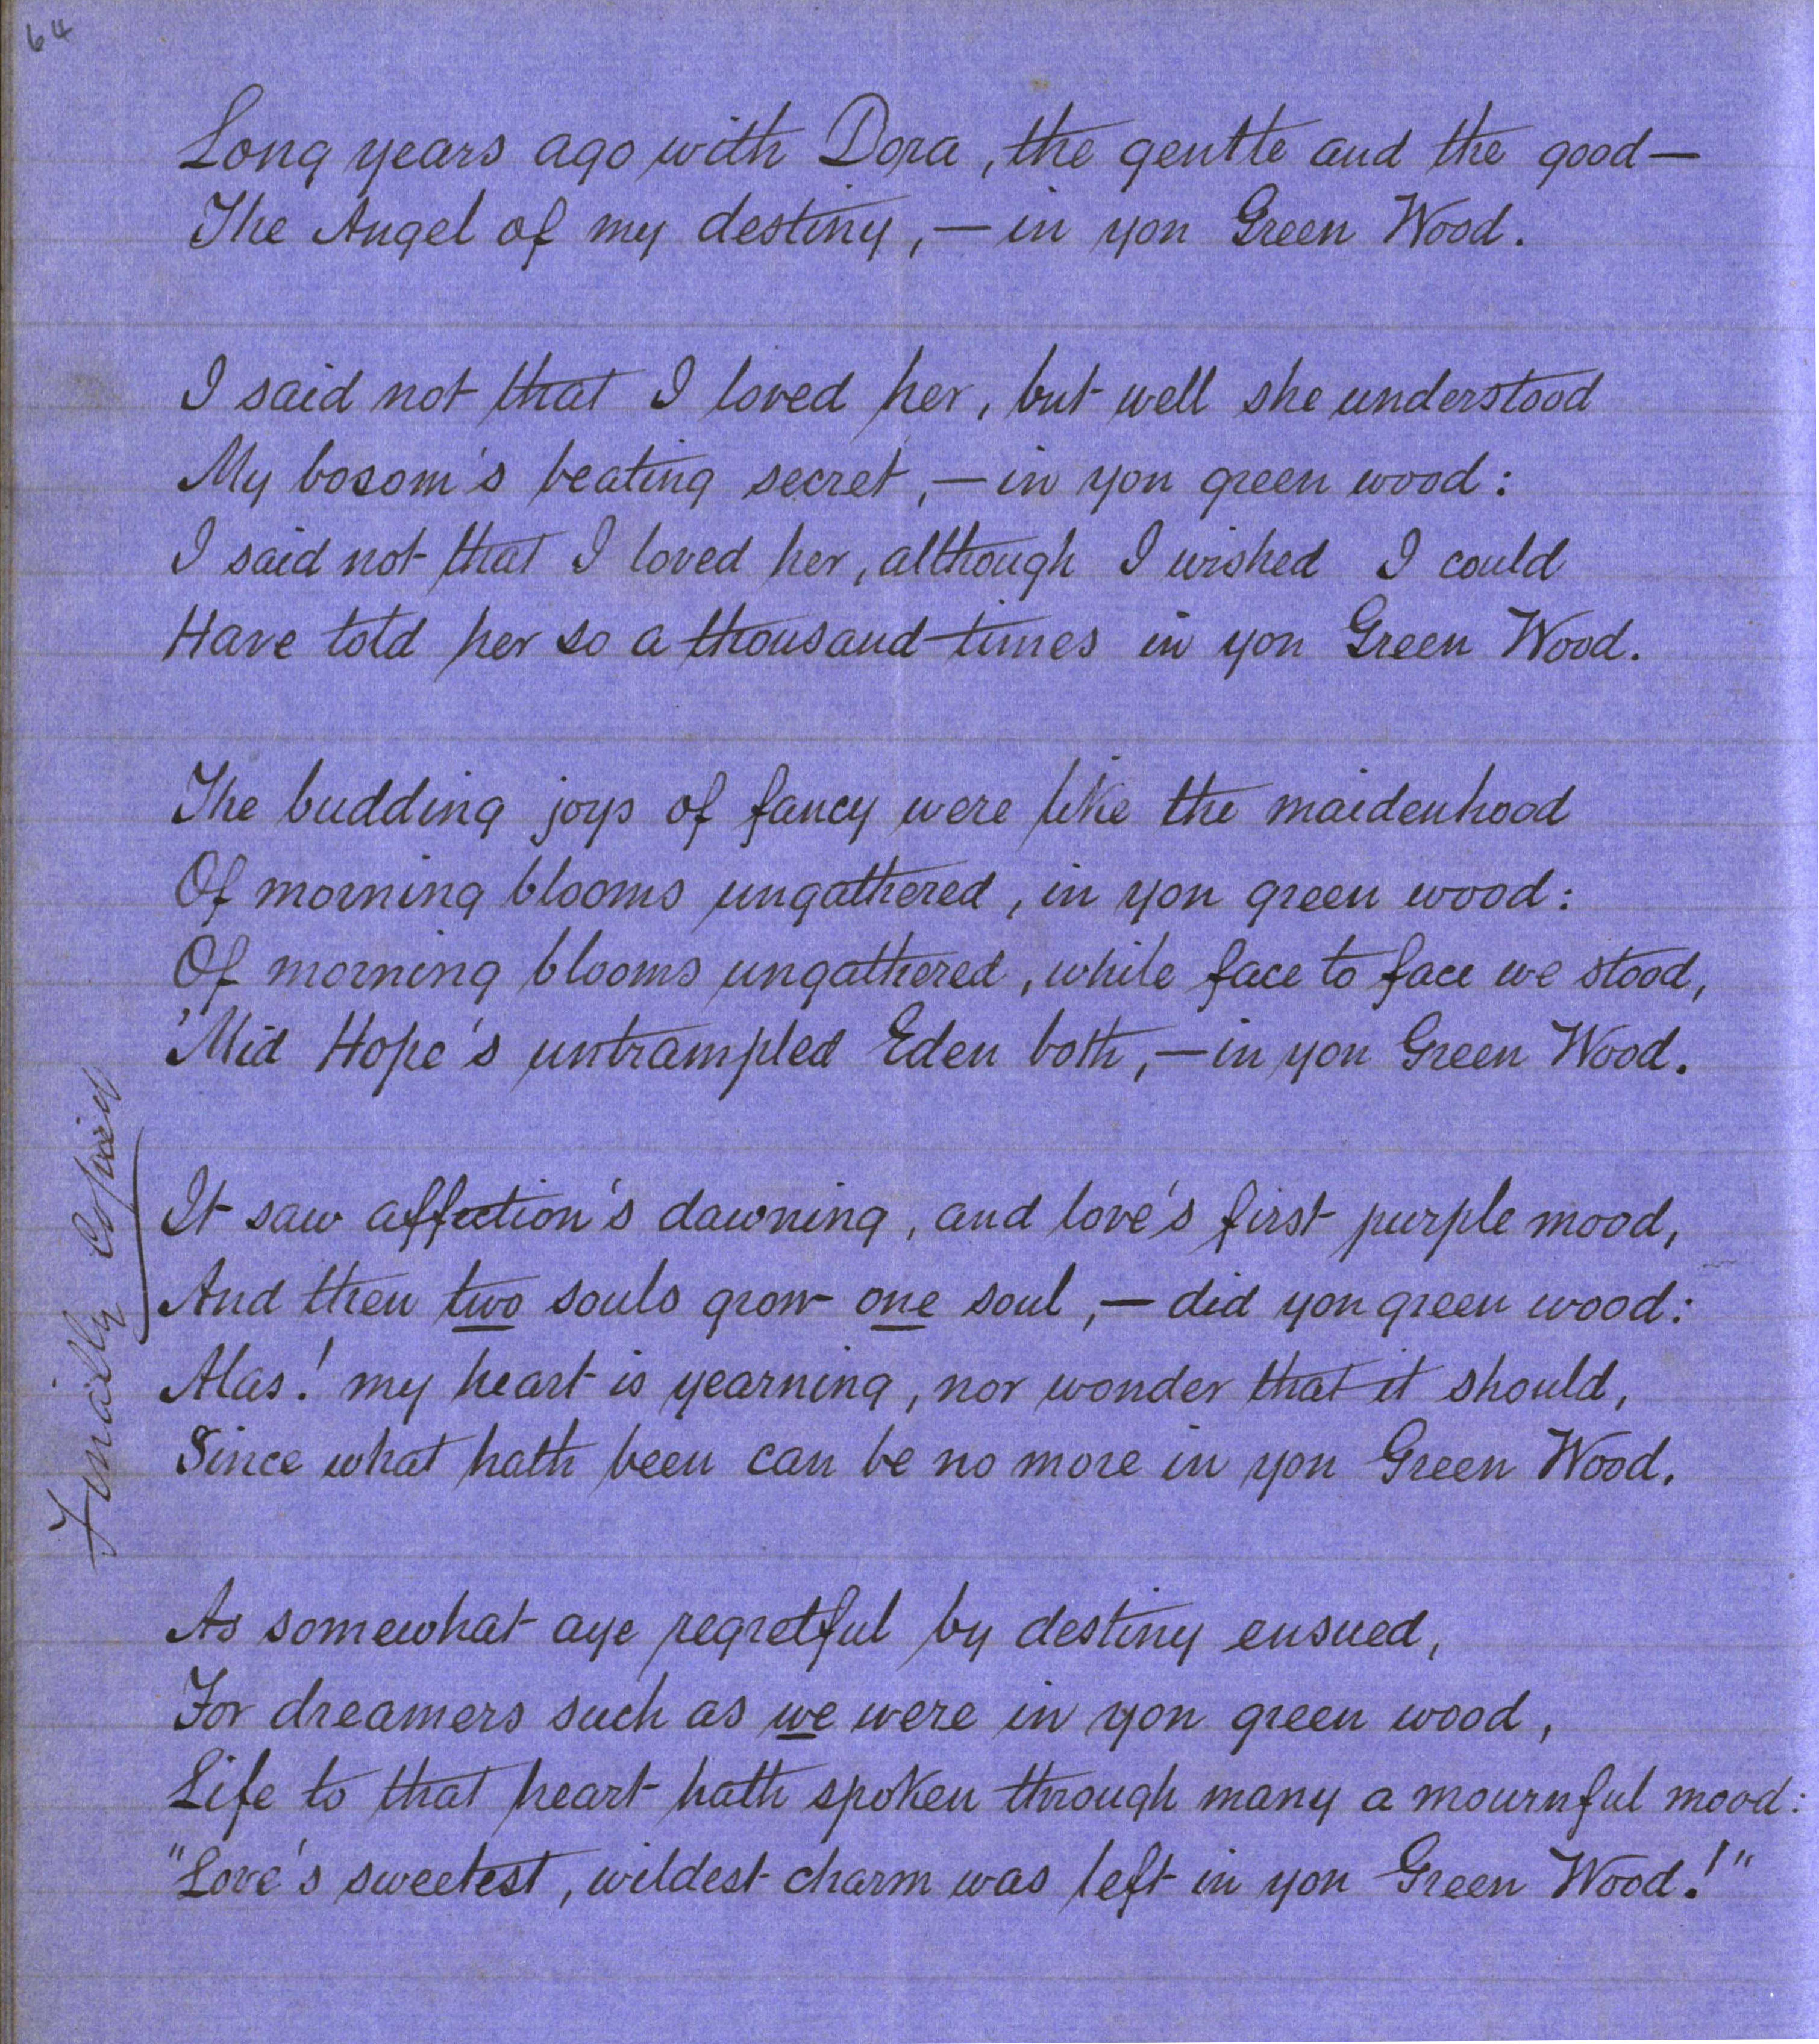 64
Long years ago with Dora, the gentle and the good—
The Angel of my destiny,—in yon Green Wood.
I said not that I loved her, but well she understood
My bosom's beating secret,—in yon green wood:
I said not that I loved her, although I wished I could
Have told her so a thousand times in yon Green Wood.
The budding joys of fancy were like the maidenhood
Of morning blooms ungathered, in yon green wood:
Of morning blooms ungathered, while face to face we stood,
'Mid Hope's untrampled Eden both,—in yon Green Wood.
It saw affection's dawning, and love's first purple mood,
And then two souls grow one soul,—did yon green wood:
Alas! my heart is yearning, nor wonder that it should,
Since what hath been can be no more in yon Green Wood.
As somewhat aye regretful by destiny ensued,
For dreamers such as we were in yon green wood,
Life to that heart hath spoken through many a mournful mood:
"Love's sweetest, wildest charm was left in yon Green Wood!"
Finally Copied